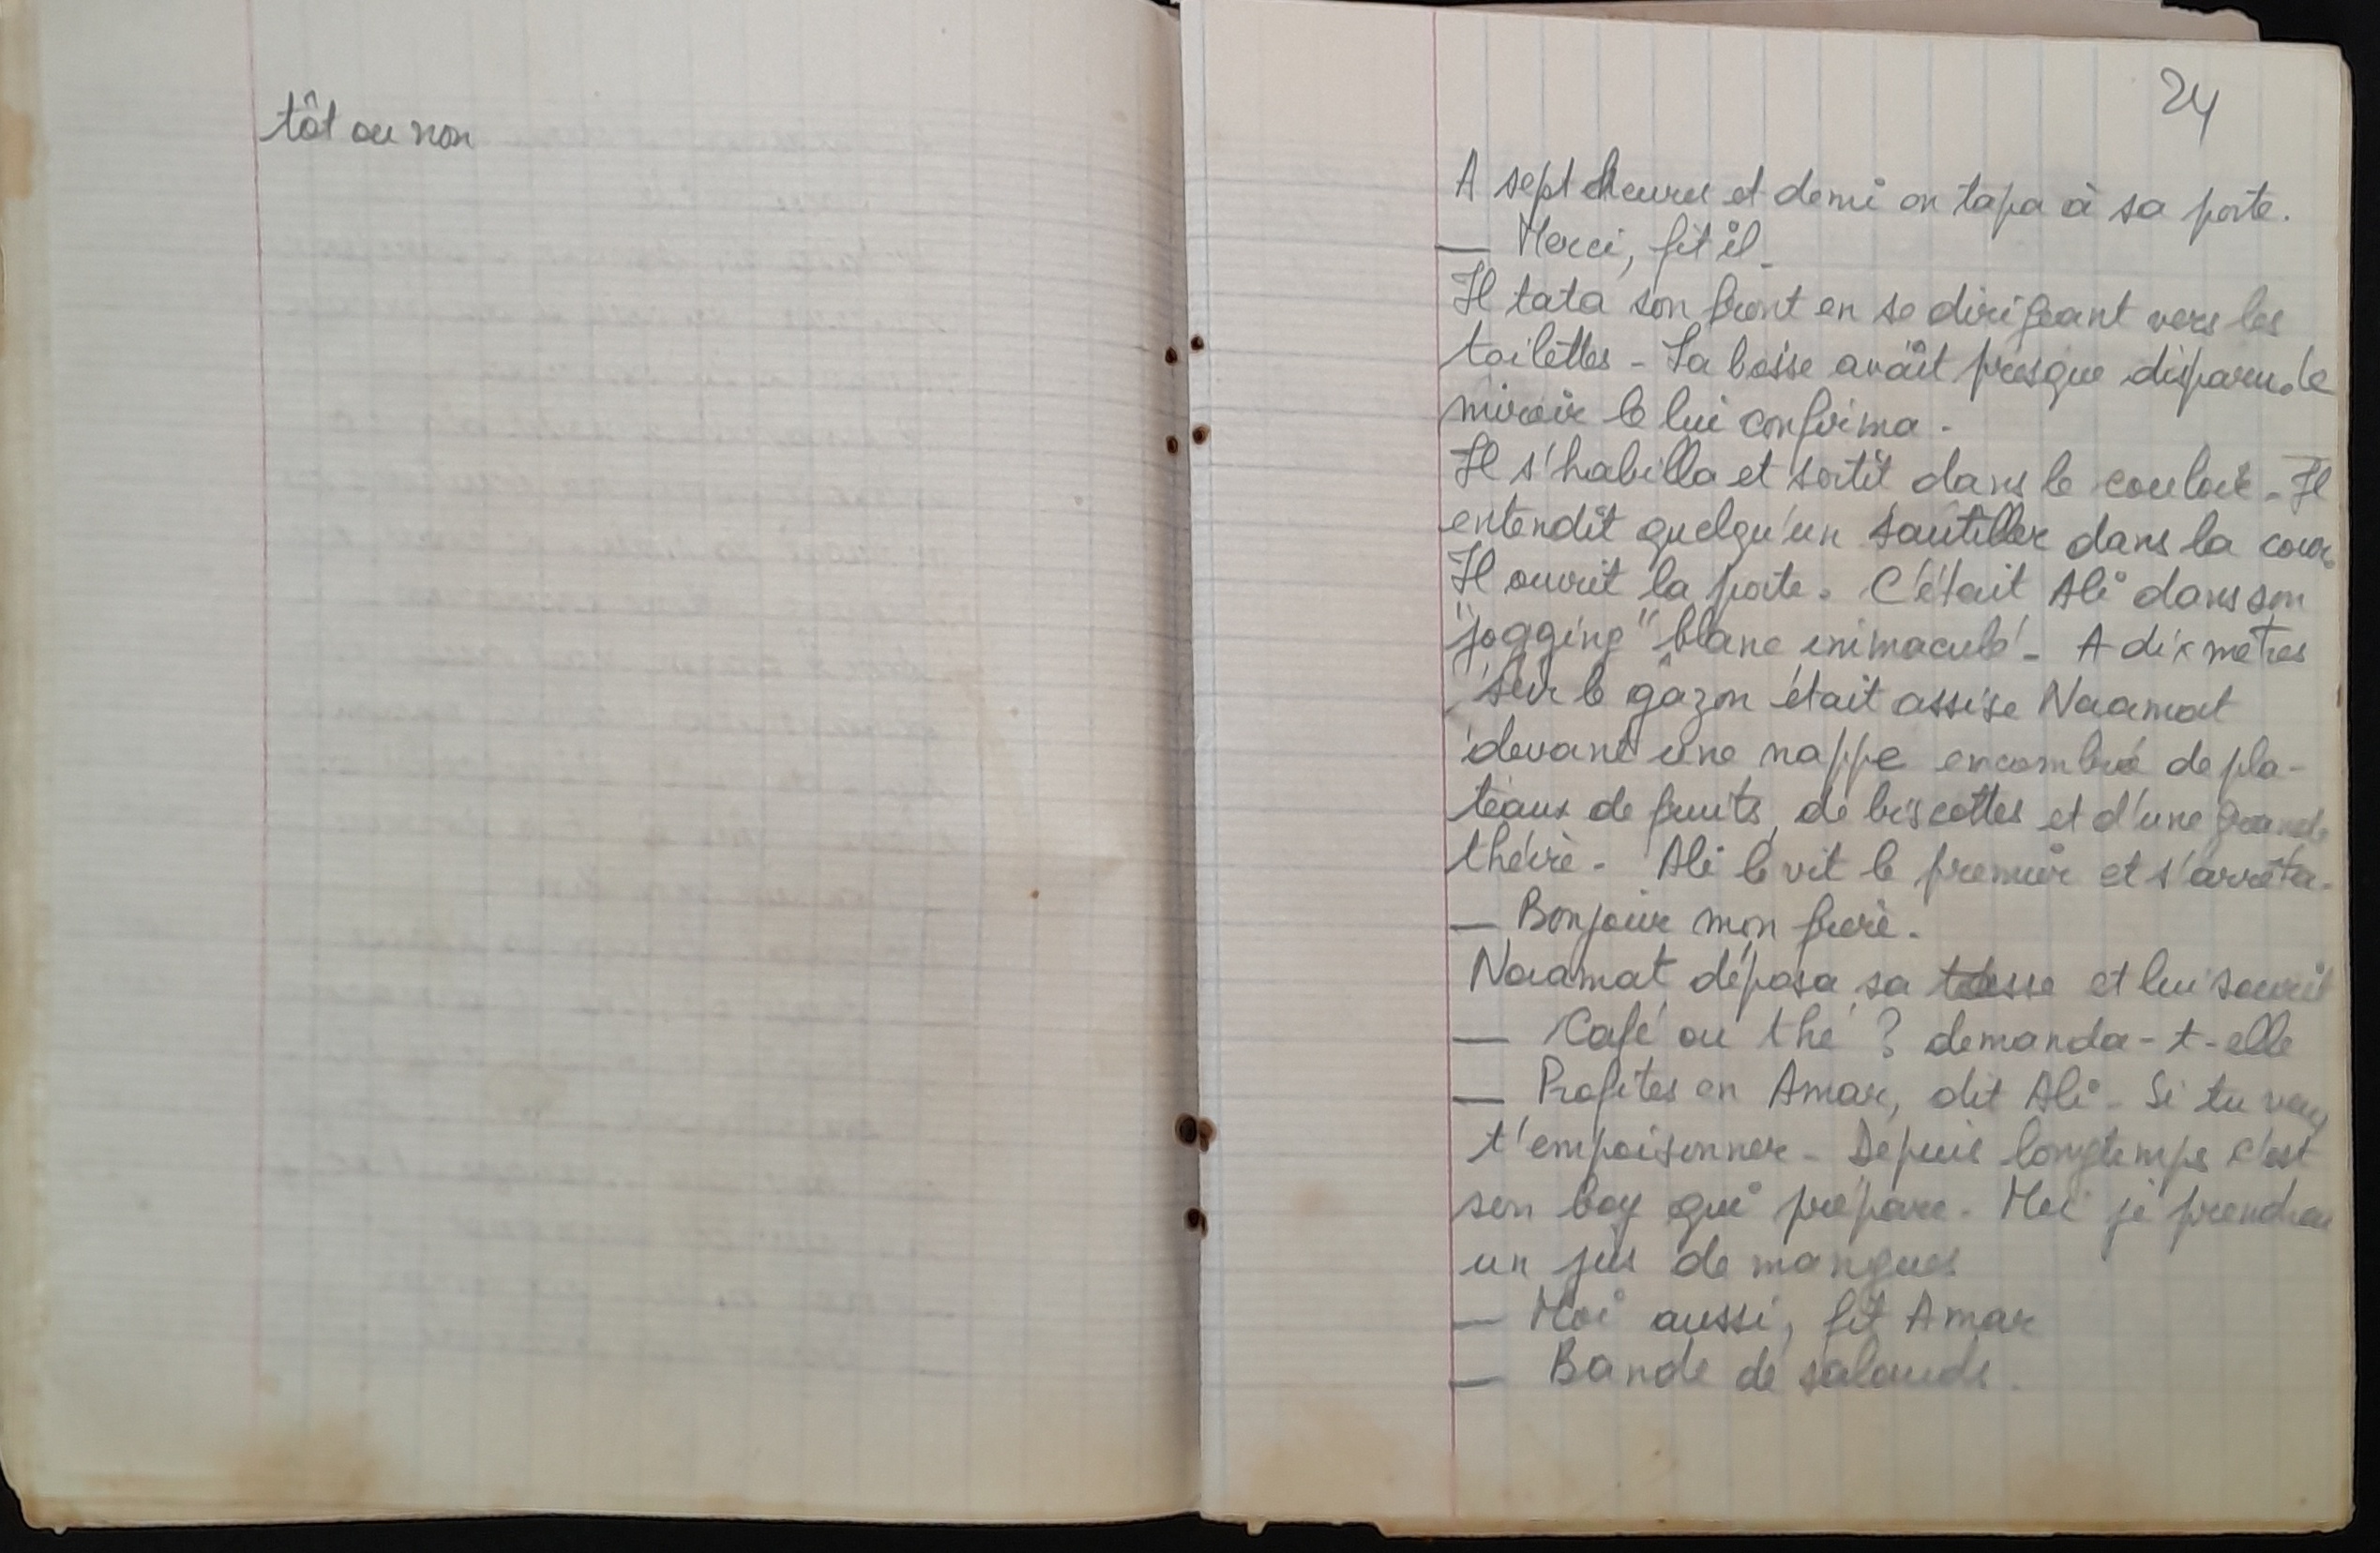 tôt ou non
24
A sept heures et demi on tapa à sa porte.
— Merci, fit il.
Il tata son front en se dirigeant vers les
toilettes - La bosse avait presque disparu. le
miroir le lui confirma.
Il s'habilla et sortit dans le couloir. Il
entendit quelqu'un sautiller dans la cour.
Il ouvrit la porte. C'était Ali dans son
"jogging" blanc immaculé - A dix mètres
sur le gâzon était assise Naamat
devant une nappe encombré de pla-
teaux de fruits, de biscottes et d'une grande
théirè. Ali le vit le premier et s'arrêta.
— Bonjour mon frere.
Naamat déposa sa tasse et lui sourit
— Café ou thé ? demanda-t-elle
— Profites en Amar, dit Ali - Si tu veux
t'empoisonner - Depuis longtemps c'est
son boy qui prépare. Moi je prendrai
un jus de mangues
— Moi aussi, fit Amar
— Bande de salauds.